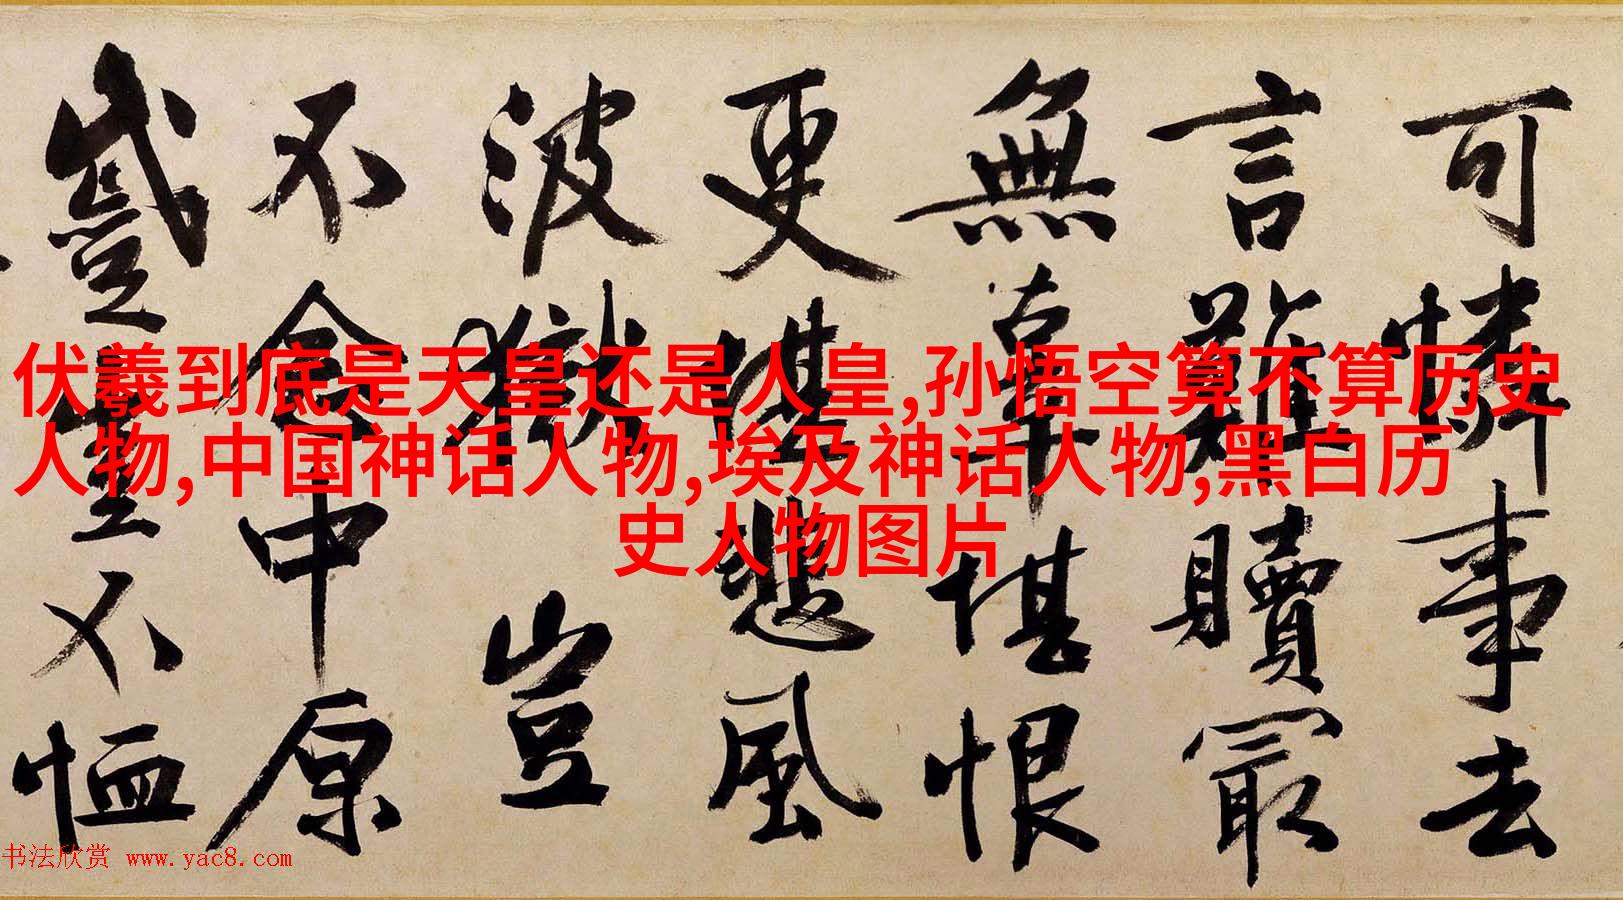 可憐事去
言難贖冣
無辜堪恨
更堪悲風
波獄豈
不念中原
蹙豈不恤
伏羲到底是天皇还是人皇,孙悟空算不算历史
人物,中国神话人物,埃及神话人物,黑白历
史人物图片
书法欣赏 www.yac8.com